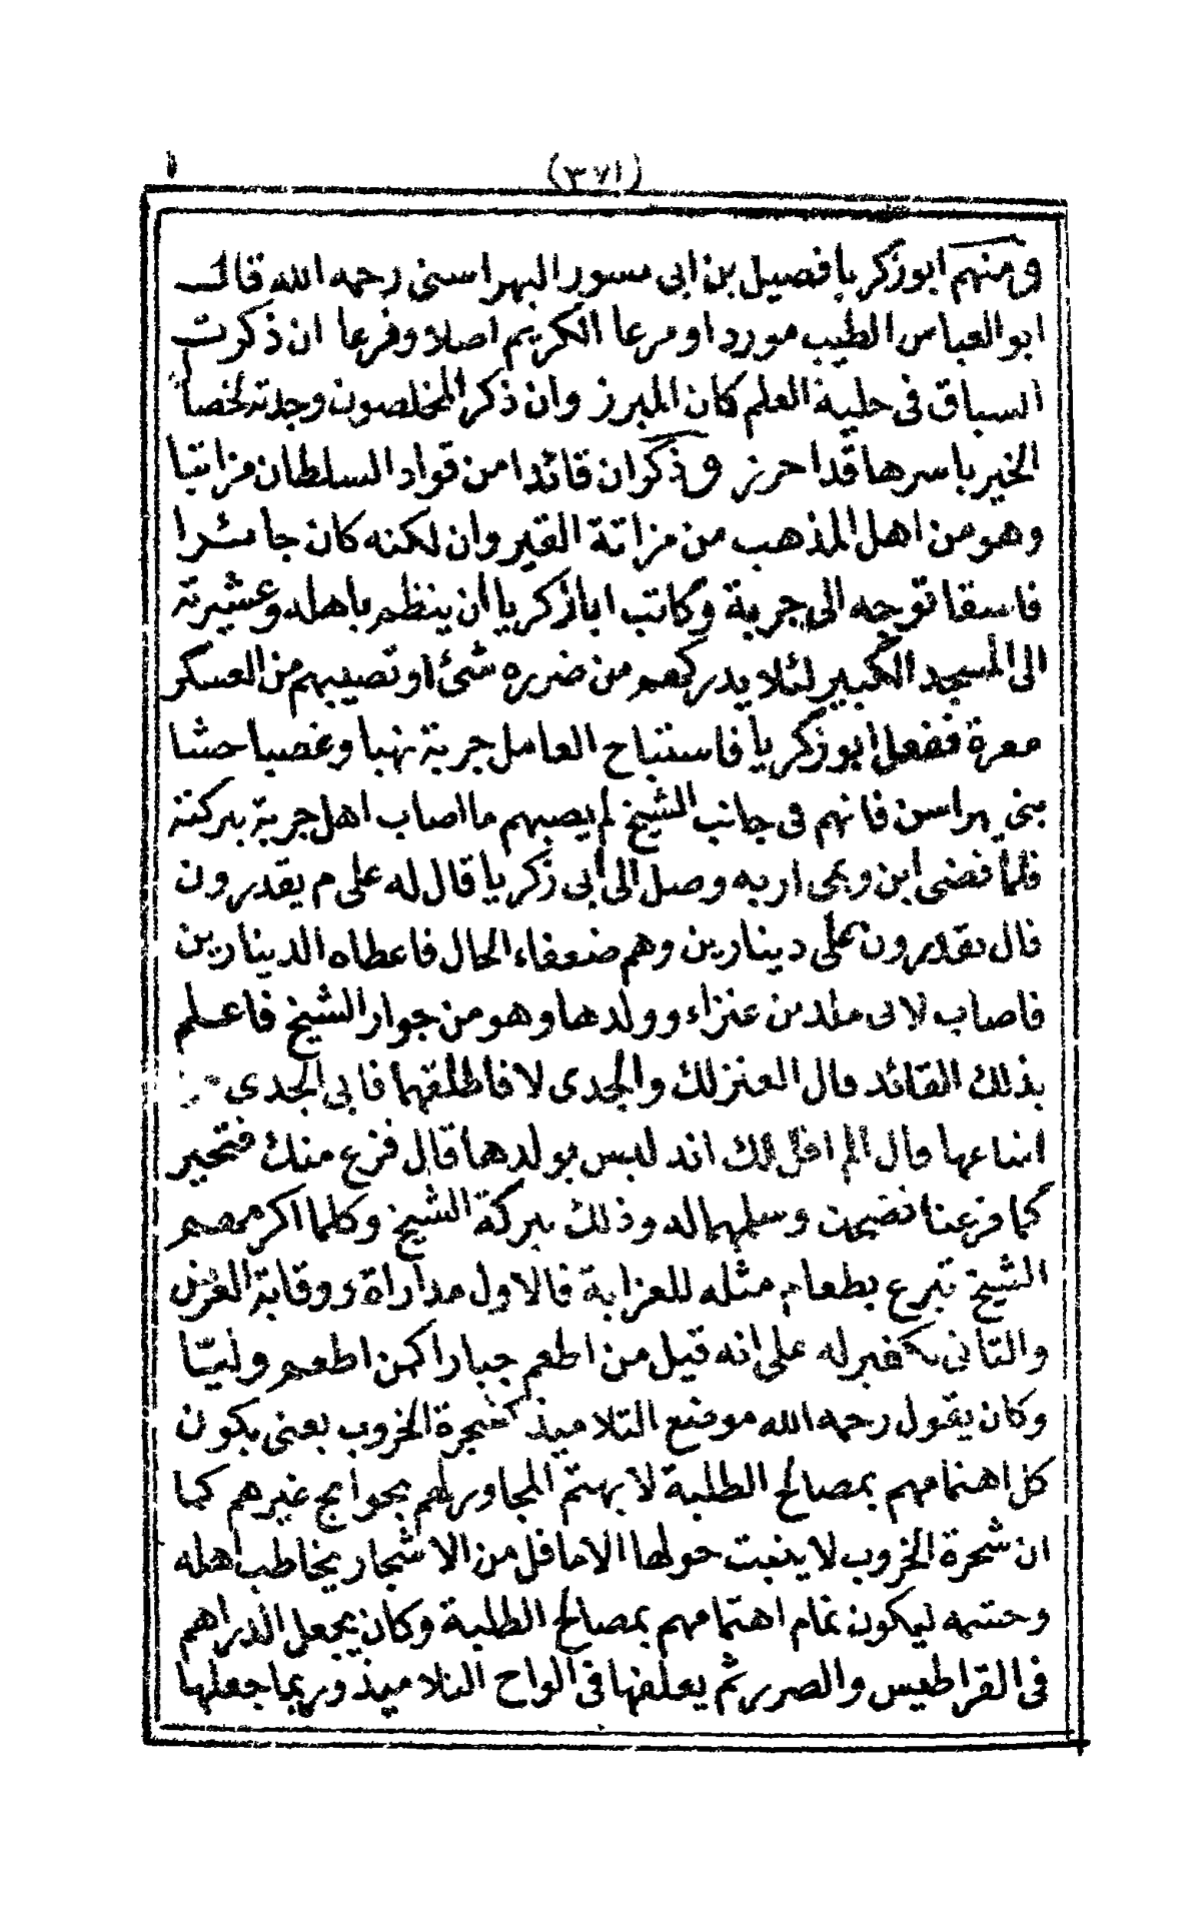 (٣٧١)
ومنهم ابو زكرياء فصيل بن ابى مسور اليهراسنى رحمه الله قال
ابو العباس الطيب موردا ومرعا الكريم اصلا وفرعا ان ذكرت
السباق فى حلبة العلم كان المبرز وان ذكر المخلصون وجدته لخصال
الخير باسرها قد احرز وذكر ان قائدا من قواد السلطان مزاتيا
وهو من اهل المذهب من مزاتة القيروان لكنه كان جائرا
فاسقا توجه الى جربة وكاتب ابا زكريا ان ينظم باهله وعشيرته
الى المسجد الكبير لئلا يدركهم من ضرره شئ او تصيبهم من العسكر
معرة ففعل ابو زكريا فاستباح العامل جربة نهبا وغصبا حشا
بنى يهراسن فانهم فى جانب الشيخ لم يصبهم ما اصاب اهل جربة ببركته
فلما قضى ابن ويمى اربه وصل الى ابى زكريا قال له على م يقدرون
قال يقدرون على دينارين وهم ضعفاء الحال فاعطاه الدينارين
فاصاب لابى عنزاء وولدها وهو من جوار الشيخ فاعلم
بذلك القائد قال العنز لك والجدى لا فاطلقها فابى الجدى
اتباعها قال الم اقل لك انه ليس بولدها قال فزع منك فتحير
كما فزعنا وسلمهما له وذلك ببركة الشيخ وكلما اكرمهم
الشيخ تبرع بطعام مثله للعزابة فالاول مداراة ووقاية العرض
والثانى تكفير له على انه قيل من اطعم جبارا كمن اطعم وليّا
وكان يقول رحمه الله موضع التلاميذ كشجرة الخروب يعنى يكون
كل اهتمامهم بمصالح الطلبة لا يهتم المجاور لهم بحوايج غيرهم كما
ان شجرة الخروب لا ينبت حولها الا ما قل من الاشجار يخاطب اهله
وحشمه ليكون تمام اهتمامهم بمصالح الطلبة وكان يجعل الدراهم
فى القراطيس والصرر ثم يعلقها فى الواح التلاميذ وربما جعلها